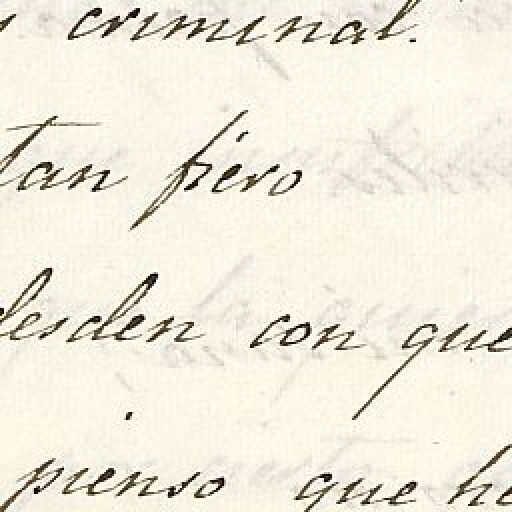 y criminal.
tan fiero
desden con que
pienso que he